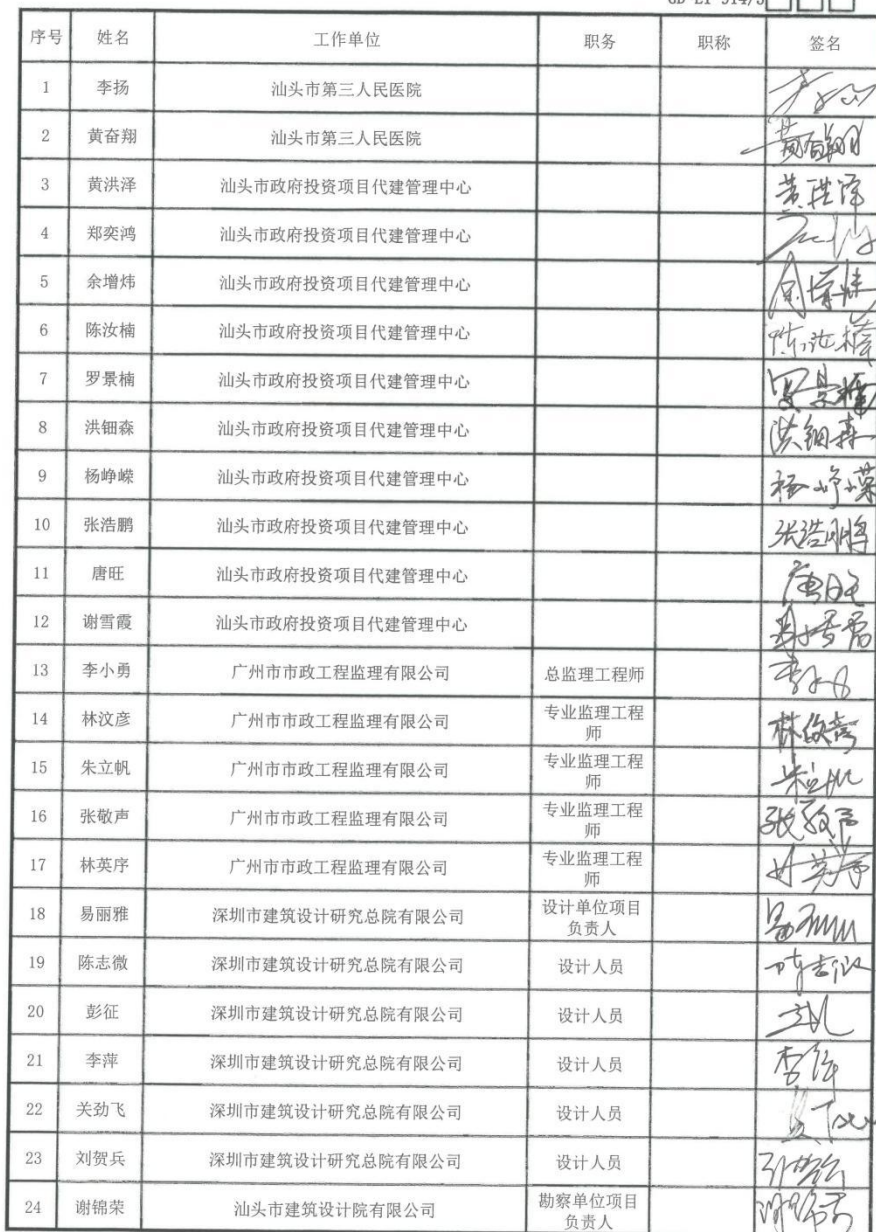 序号 姓名 工作单位 职务 职称 签名
1 李扬 汕头市第三人民医院
2 黄奋翔 汕头市第三人民医院 黄奋翔
3 黄洪泽 汕头市政府投资项目代建管理中心 黄洪泽
4 郑奕鸿 汕头市政府投资项目代建管理中心
5 余增炜 汕头市政府投资项目代建管理中心 余增炜
6 陈汝楠 汕头市政府投资项目代建管理中心 陈汝楠
7 罗景楠 汕头市政府投资项目代建管理中心 罗景楠
8 洪钿森 汕头市政府投资项目代建管理中心 洪钿森
9 杨峥嵘 汕头市政府投资项目代建管理中心 杨峥嵘
10 张浩鹏 汕头市政府投资项目代建管理中心 张浩鹏
11 唐旺 汕头市政府投资项目代建管理中心 唐旺
12 谢雪霞 汕头市政府投资项目代建管理中心 谢雪霞
13 李小勇 广州市市政工程监理有限公司 总监理工程师
14 林汶彦 广州市市政工程监理有限公司 专业监理工程
师
15 朱立帆 广州市市政工程监理有限公司 专业监理工程
师 朱立帆
16 张敬声 广州市市政工程监理有限公司 专业监理工程
师 张敬声
17 林英序 广州市市政工程监理有限公司 专业监理工程
师 林英序
18 易丽雅 深圳市建筑设计研究总院有限公司 设计单位项目
负责人
19 陈志微 深圳市建筑设计研究总院有限公司 设计人员 陈志微
20 彭征 深圳市建筑设计研究总院有限公司 设计人员
21 李萍 深圳市建筑设计研究总院有限公司 设计人员 李萍
22 关劲飞 深圳市建筑设计研究总院有限公司 设计人员
23 刘贺兵 深圳市建筑设计研究总院有限公司 设计人员
24 谢锦荣 汕头市建筑设计院有限公司 勘察单位项目
负责人